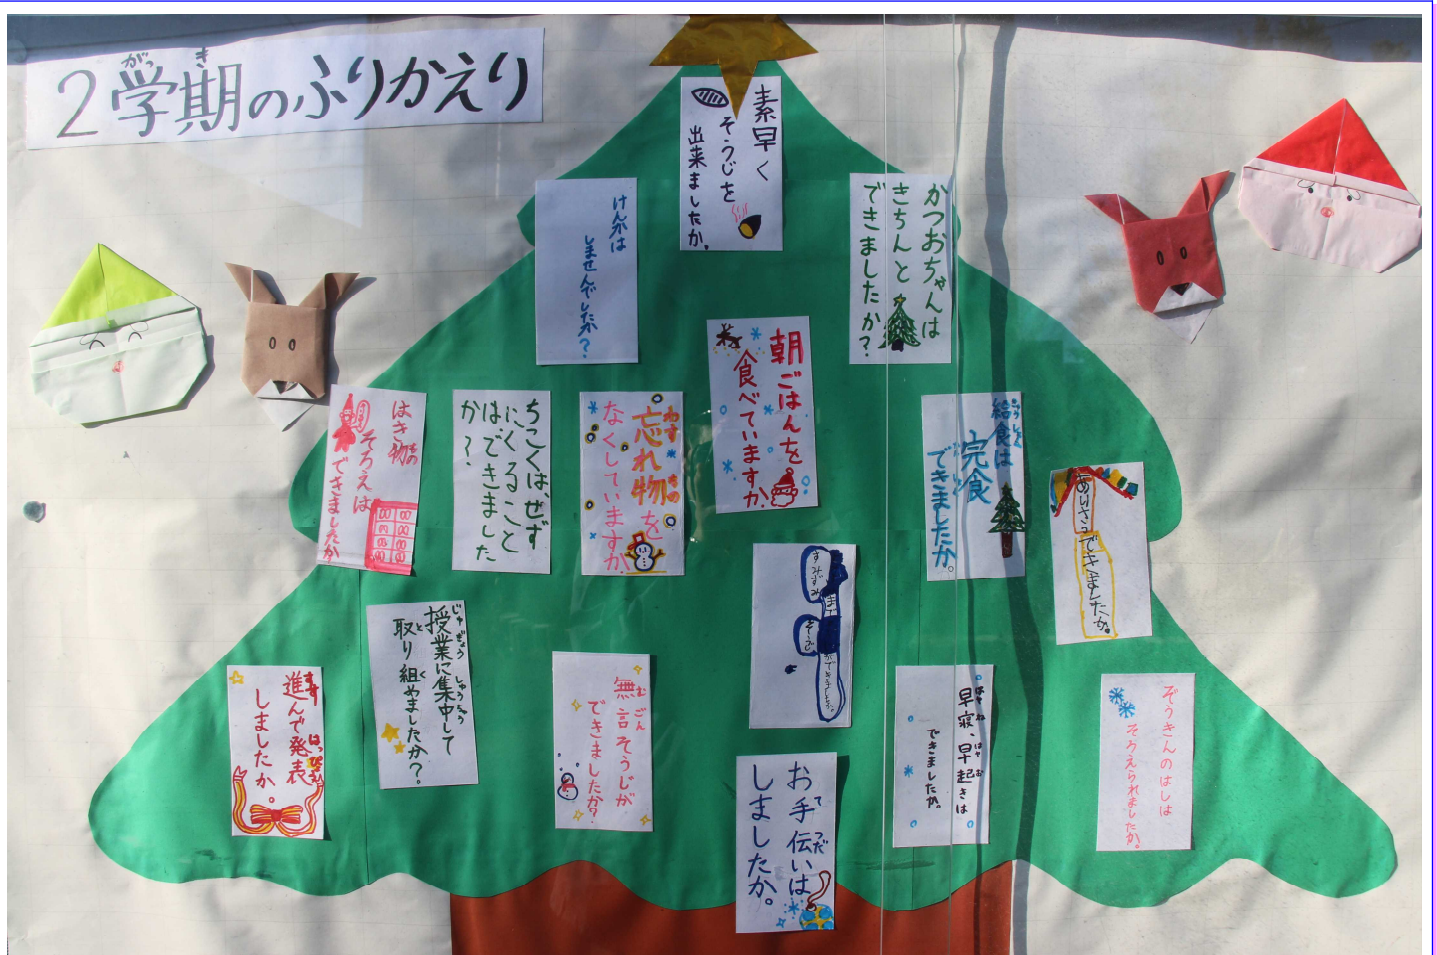 がっ き
2学期のふりかえり
素早く
そうじを
出来ましたか。
けんかは
しませんでしたか？
かつおちゃんは
きちんと
できましたか？
朝ごはんを
食べていますか
はき物
もの
そろえは
できましたか
ちこくは、ぜず
にくること
はできました
か？、
わす もの
忘れ物を
なくしていますか
きゅうしょく
給食は
完食
できましたか。
あいさつ
できましたか。
すみずみ
まで
そうじ
じゅぎょう しゅうちゅう
授業に集中して
と く
取り組やましたか？
すす はっぴょう
進んで発表
しましたか。
む ごん
無言そうじが
できましたか？
はや ね はや お
早寝、早起きは
できましたか。
ぞうきんのはしは
そろえられましたか。
て つだ
お手伝いは
しましたか。